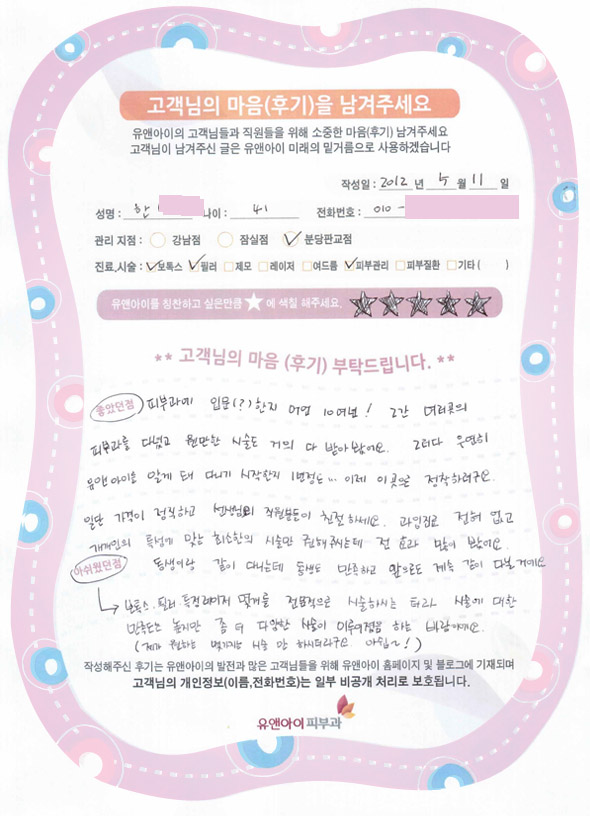 고객님의 마음(후기)을 남겨주세요
유앤아이의 고객님들과 직원들을 위해 소중한 마음(후기) 남겨주세요
고객님이 남겨주신 글은 유앤아이 미래의 밑거름으로 사용하겠습니다
작성일 : 2012 년 5 월 11 일
성명 : 한 나이 : 41 전화번호 : 010 -
관리 지점 : 강남점 잠실점 분당판교점
진료,시술 : 보톡스 필러 제모 레이저 여드름 피부관리 피부질환 기타 ( )
유앤아이를 칭찬하고 싶은만큼 ★ 에 색칠 해주세요.
** 고객님의 마음 (후기) 부탁드립니다. **
좋았던점 피부과에 입문(?)한지 어언 10여년! 그간 여러곳의
피부과를 다녔고 웬만한 시술도 거의 다 받아봤어요. 그러다 우연히
유앤아이를 알게 돼 다니기 시작한지 1년정도... 이제 이곳은 정착하려구요.
일단 가격이 정직하고 선생님외 직원분들이 친절하세요. 과잉진료 전혀 없고
개개인의 특성에 맞는 최소한의 시술만 권해주시는데 전 효과 많이 봤어요.
아쉬웠던점 동생이랑 같이 다니는데 동생도 만족하고 앞으로도 계속 같이 다닐거에요
보톡스. 필러. 특정레이저 몇개를 전문적으로 시술하시는 터라 시술에 대한
만족도는 높지만 좀 더 다양한 시술이 이루어졌음 하는 바람이에요.
(제가 원하는 몇가지는 시술 안 하시더라구요. 아쉽~!)
작성해주신 후기는 유앤아이의 발전과 많은 고객님들을 위해 유앤아이 홈페이지 및 블로그에 기재되며
고객님의 개인정보(이름,전화번호)는 일부 비공개 처리로 보호됩니다.
유앤아이피부과